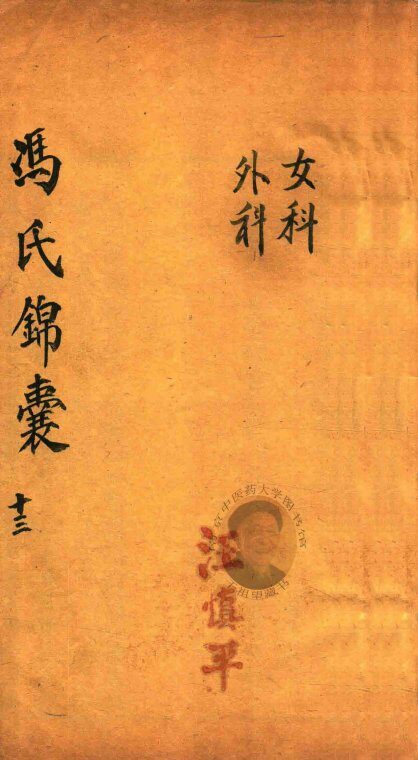 女科
外科
馮氏錦囊
十三
汪慎平
京中医药大学图书馆
祖望藏书